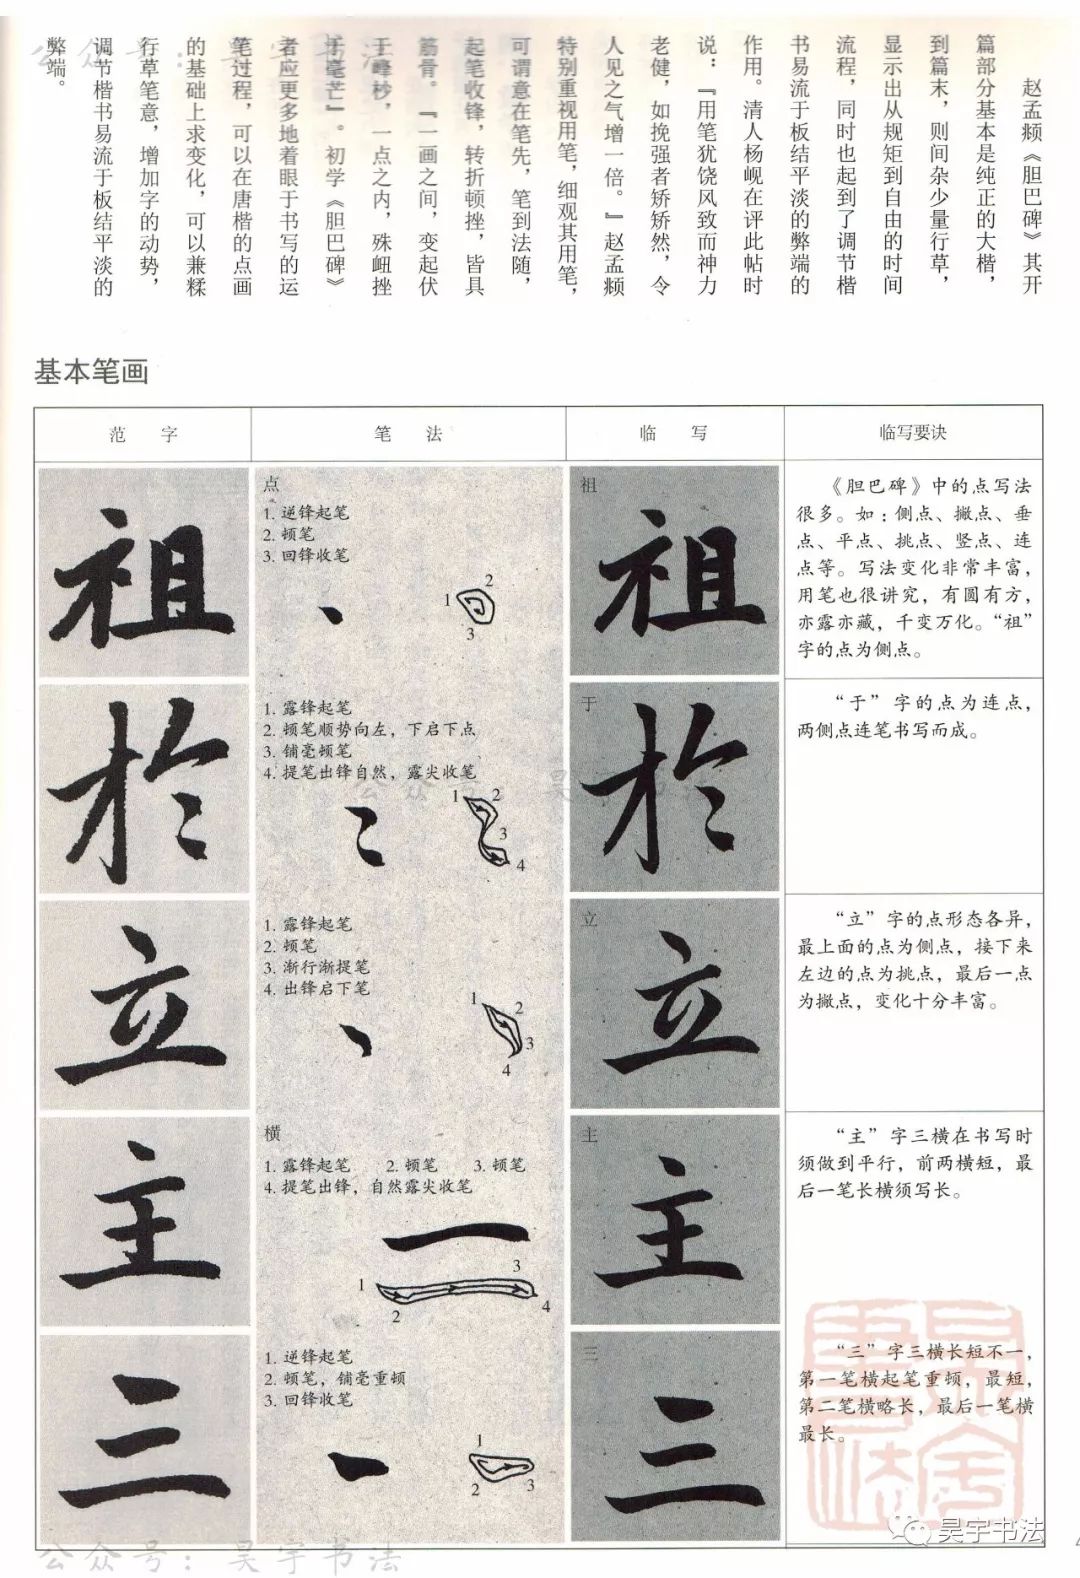 赵孟頫《胆巴碑》其开
篇部分基本是纯正的大楷，
到篇末，则间杂少量行草，
显示出从规矩到自由的时间
流程，同时也起到了调节楷
书易流于板结平淡的弊端的
作用。清人杨岘在评此帖时
说：『用笔犹饶风致而神力
老健，如挽强者矫矫然，令
人见之气增一倍。』赵孟頫
特别重视用笔，细观其用笔，
可谓意在笔先，笔到法随，
起笔收锋，转折顿挫，皆具
筋骨。『一画之间，变起伏
于峰杪，一点之内，殊衄挫
于毫芒』。初学《胆巴碑》
者应更多地着眼于书写的运
笔过程，可以在唐楷的点画
的基础上求变化，可以兼糅
行草笔意，增加字的动势，
调节楷书易流于板结平淡的
弊端。
公众号：昊宇书法
基本笔画
范 字
笔 法
临 写
临写要诀
祖
点
1. 逆锋起笔
2. 顿笔
3. 回锋收笔
1
2
3
祖
祖
《胆巴碑》中的点写法
很多。如：侧点、撇点、垂
点、平点、挑点、竖点、连
点等。写法变化非常丰富，
用笔也很讲究，有圆有方，
亦露亦藏，千变万化。“祖”
字的点为侧点。
於
1. 露锋起笔
2. 顿笔顺势向左，下启下点
3. 铺毫顿笔
4. 提笔出锋自然，露尖收笔
1
2
3
4
于
於
“于”字的点为连点，
两侧点连笔书写而成。
公众号：昊宇书法
立
1. 露锋起笔
2. 顿笔
3. 渐行渐提笔
4. 出锋启下笔
1
2
3
4
立
立
“立”字的点形态各异，
最上面的点为侧点，接下来
左边的点为挑点，最后一点
为撇点，变化十分丰富。
主
横
1. 露锋起笔 2. 顿笔 3. 顿笔
4. 提笔出锋，自然露尖收笔
1
2
3
4
主
主
“主”字三横在书写时
须做到平行，前两横短，最
后一笔长横须写长。
三
1. 逆锋起笔
2. 顿笔，铺毫重顿
3. 回锋收笔
1
2
3
三
三
“三”字三横长短不一，
第一笔横起笔重顿，最短，
第二笔横略长，最后一笔横
最长。
昊宇书法
昊宇书法
公众号：昊宇书法